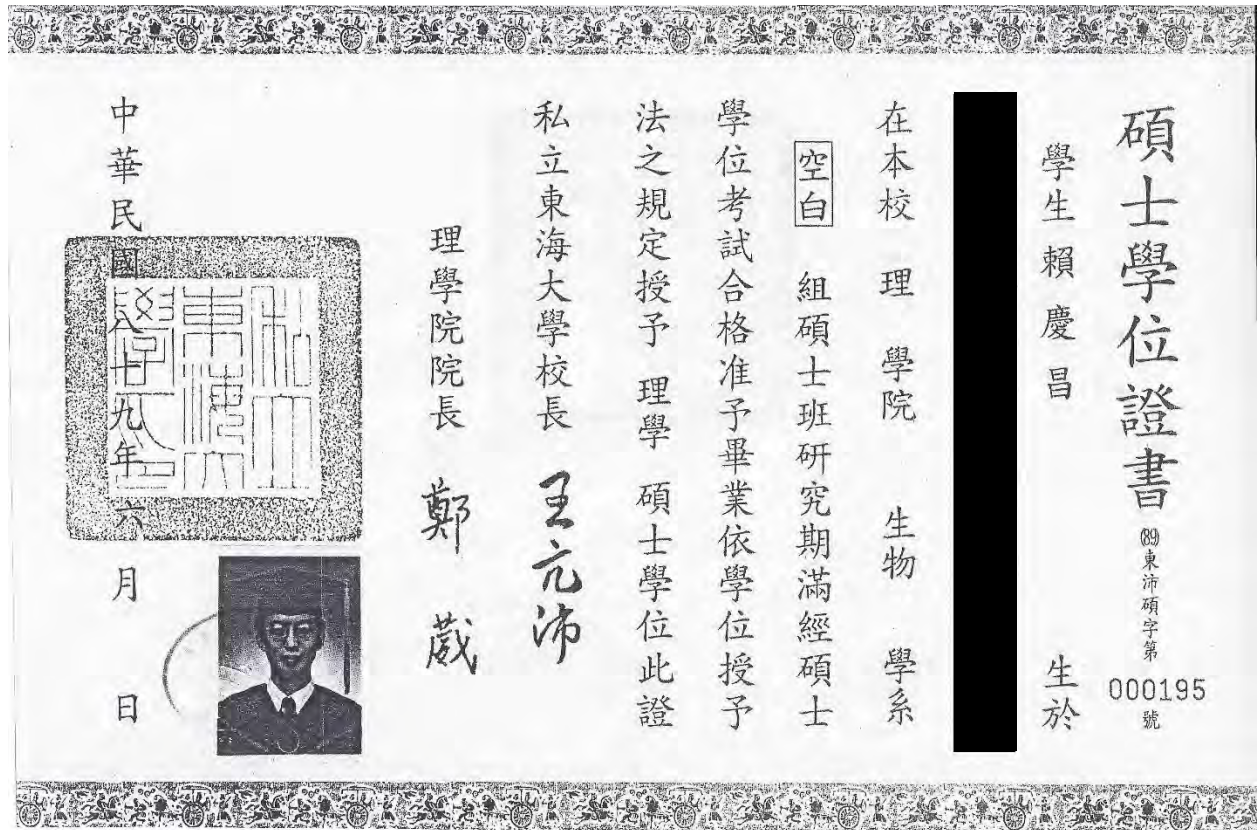 碩士學位證書
(89)東沛碩字第
000195
號
學生賴慶昌 生於
在本校 理 學院 生物 學系
空白 組碩士班研究期滿經碩士
學位考試合格准予畢業依學位授予
法之規定授予 理學 碩士學位此證
私立東海大學校長 王亢沛
理學院院長 鄭葳
中華民國八十九年六月 日
私立
東海大
學之印